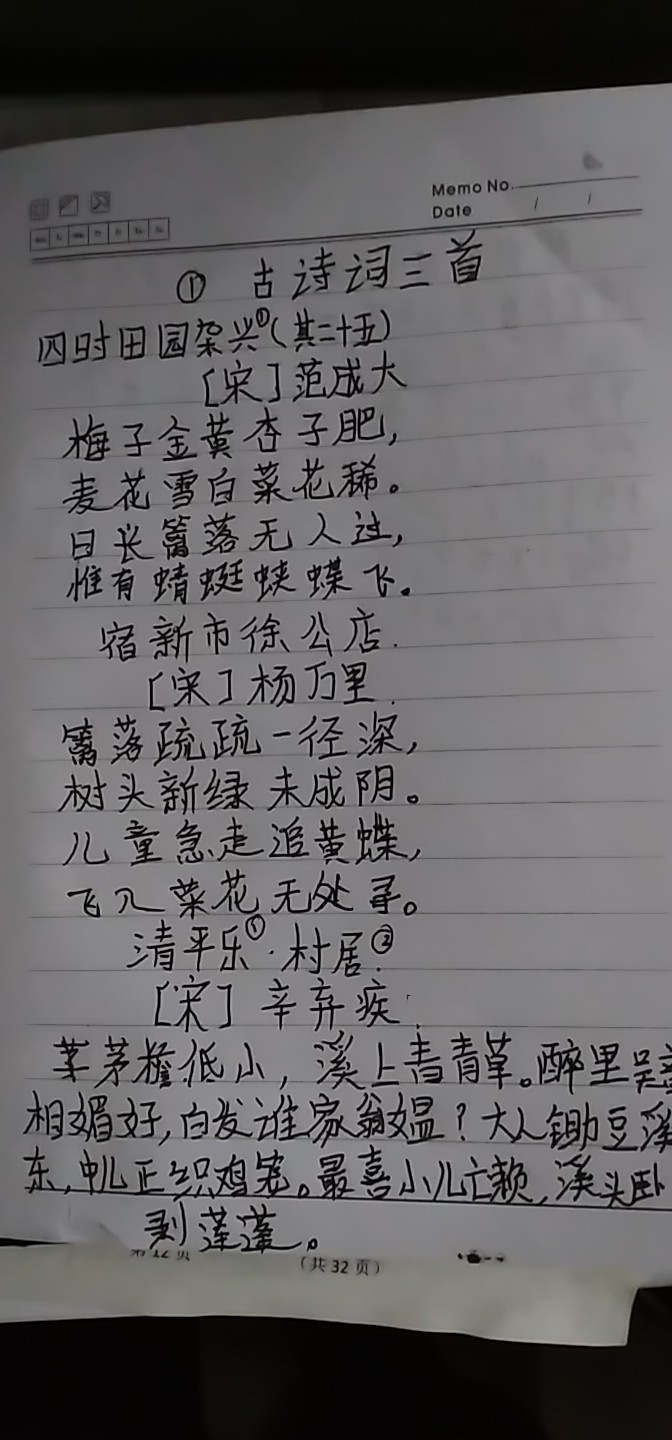 Memo No.
Date / /
① 古诗词三首
四时田园杂兴①(其二十五)
[宋]范成大
梅子金黄杏子肥,
麦花雪白菜花稀。
日长篱落无人过,
惟有蜻蜓蛱蝶飞。
宿新市徐公店.
[宋]杨万里.
篱落疏疏一径深,
树头新绿未成阴。
儿童急走追黄蝶,
飞入菜花无处寻。
清平乐①·村居②.
[宋]辛弃疾.
茅檐低小,溪上青青草。醉里吴
相媚好,白发谁家翁媪?大人锄豆溪
东,中儿正织鸡笼。最喜小儿亡赖,溪头卧
剥莲蓬。
第12页 (共32页)